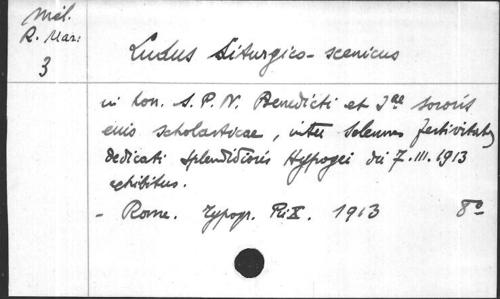 Mél.
R. Mar:
3
Ludus Liturgico-scenicus
in hon. S. P. N. Benedicti et Jae sororis
eius scholasticae, inter solemnes festivitates
dedicati splendidioris Hypogei die 7. III. 1913
exhibitus.
- Rome. Typogr. Pii X. 1913 8o